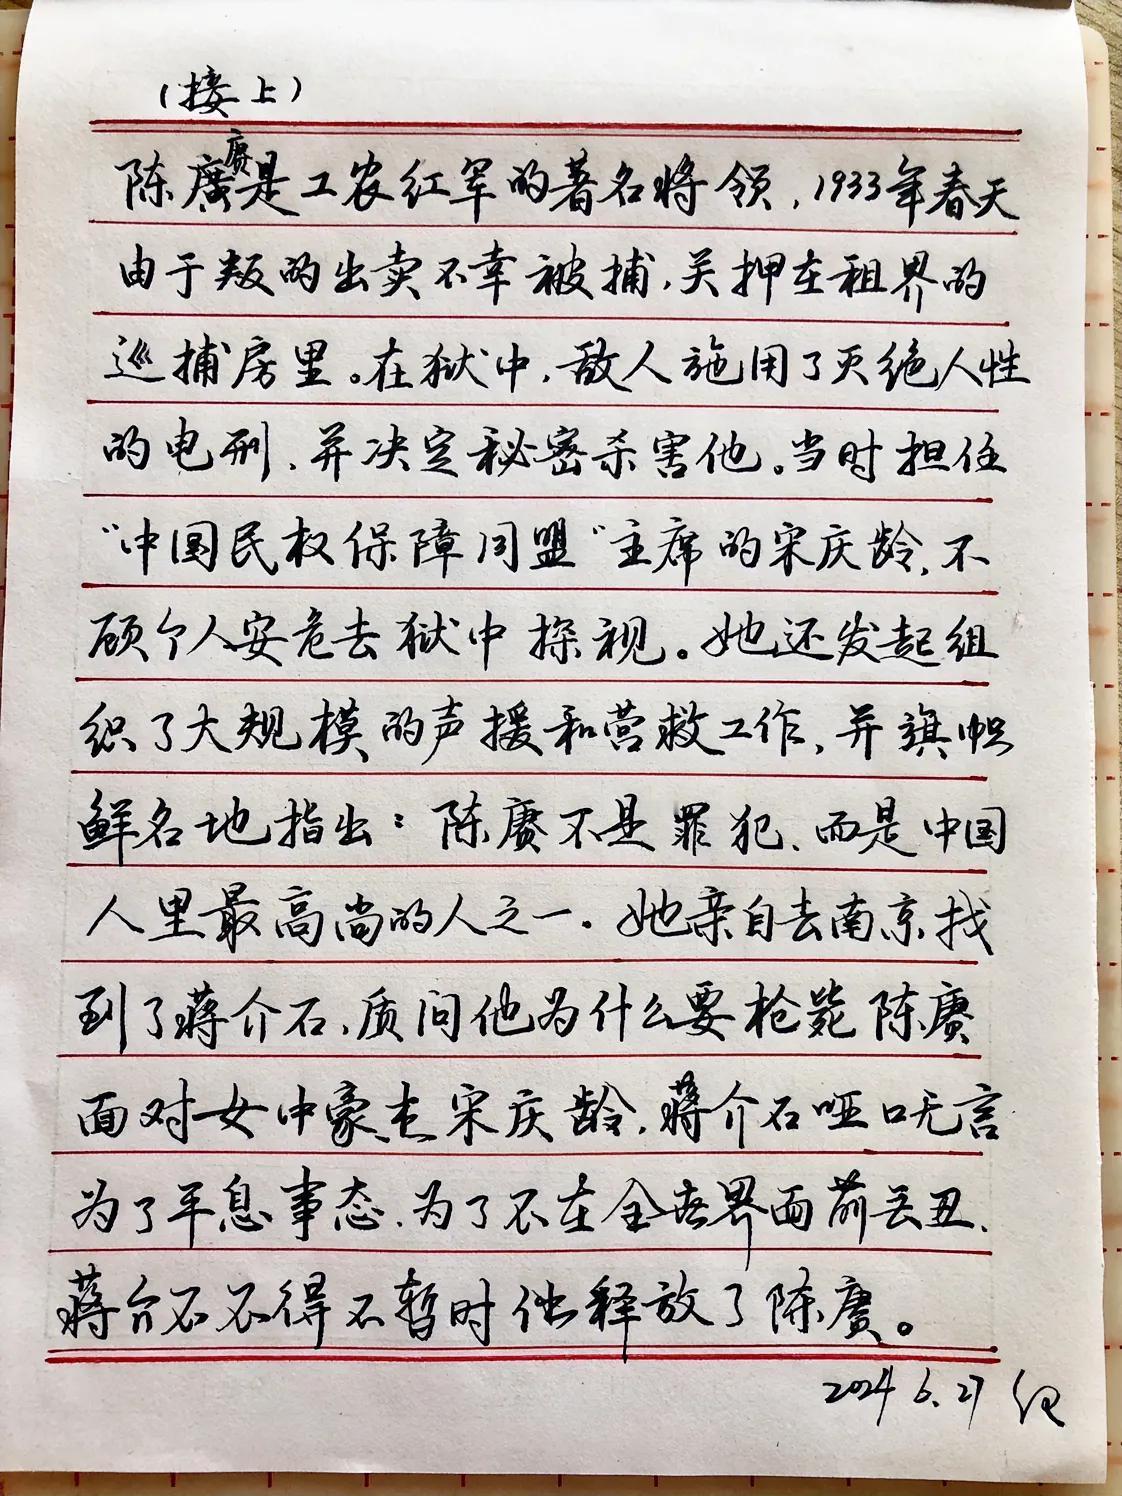 （接上）
陈赓是工农红军的著名将领，1933年春天
由于叛的出卖不幸被捕，关押在租界的
巡捕房里。在狱中，敌人施用了灭绝人性
的电刑、并决定秘密杀害他。当时担任
“中国民权保障同盟”主席的宋庆龄，不
顾个人安危去狱中探视。她还发起组
织了大规模的声援和营救工作，并旗帜
鲜名地指出：陈赓不是罪犯、而是中国
人里最高尚的人之一．她亲自去南京找
到了蒋介石，质问他为什么要枪毙陈赓
面对女中豪杰宋庆龄，蒋介石哑口无言
为了平息事态．为了不在全世界面前丢丑、
蒋介石不得不暂时释放了陈赓。
2024 6.27